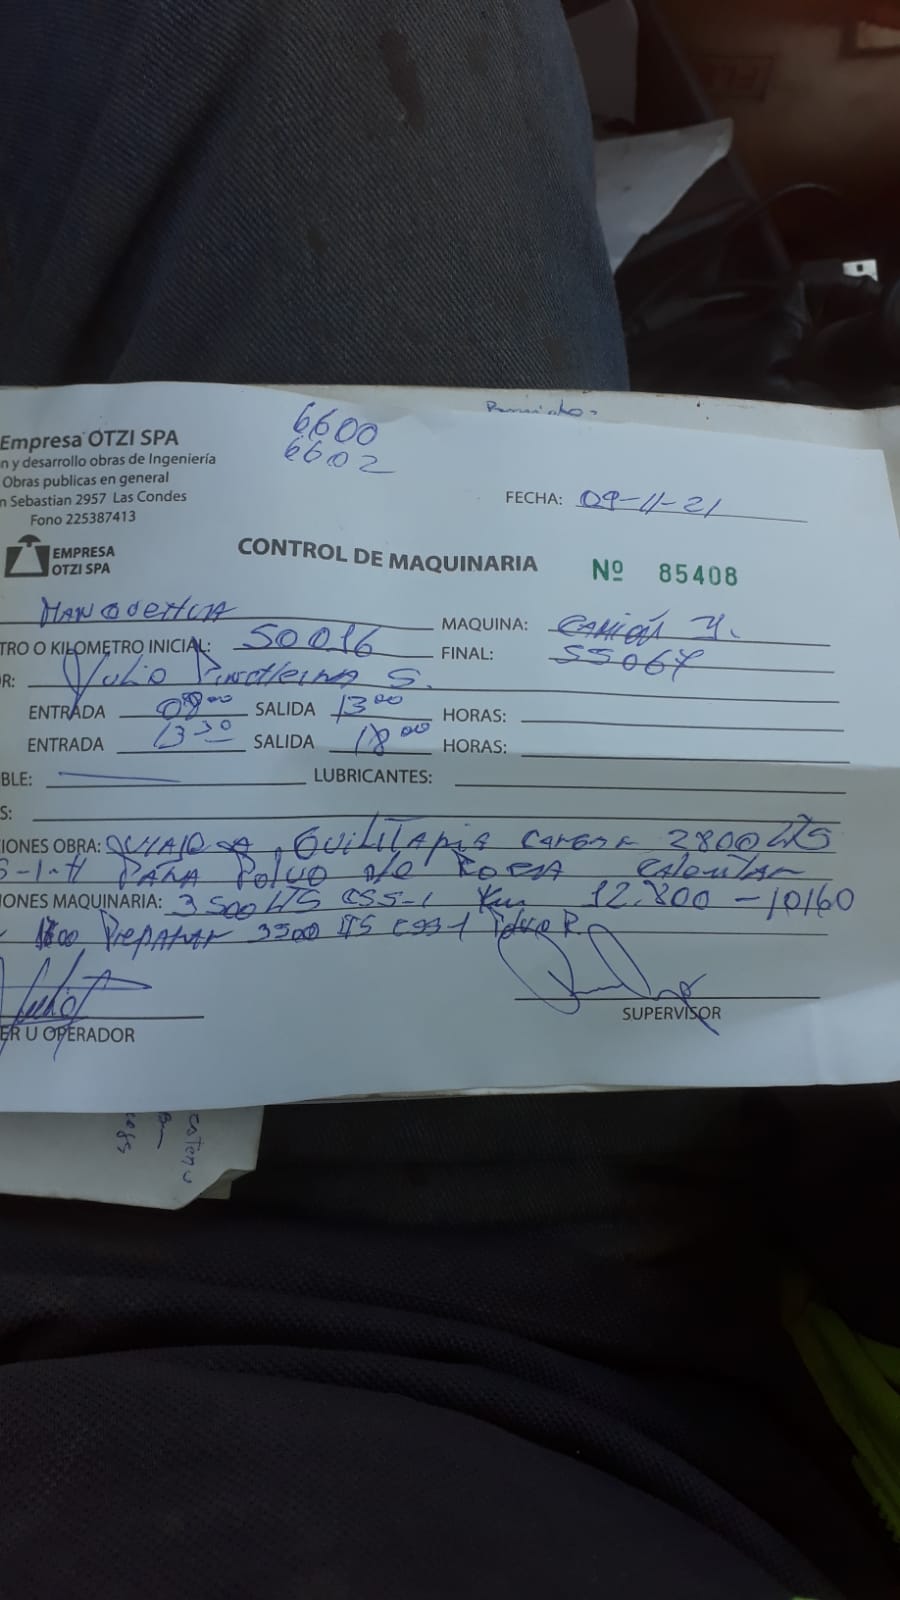 6600
6602
Empresa OTZI SPA
n y desarrollo obras de Ingeniería
Obras publicas en general
n Sebastian 2957 Las Condes
Fono 225387413
FECHA: 09-11-21
EMPRESA
OTZI SPA
CONTROL DE MAQUINARIA
Nº 85408
MAQUINA: CAMIÓN
TRO O KILOMETRO INICIAL: 50016
FINAL: 55067
OR: Julio S.
ENTRADA 08:00 SALIDA 13:00 HORAS:
ENTRADA 13:30 SALIDA 18:00 HORAS:
BLE: LUBRICANTES:
S:
IONES OBRA: VIAJE A CARGAR 2800 LTS
S-1-H PARA POLVO DE ROCA
IONES MAQUINARIA: 3500 LTS CSS-1 Km 12.800 - 10160
PrepArAr 3500 LTS CSS-1 R.
ER U OPERADOR
SUPERVISOR